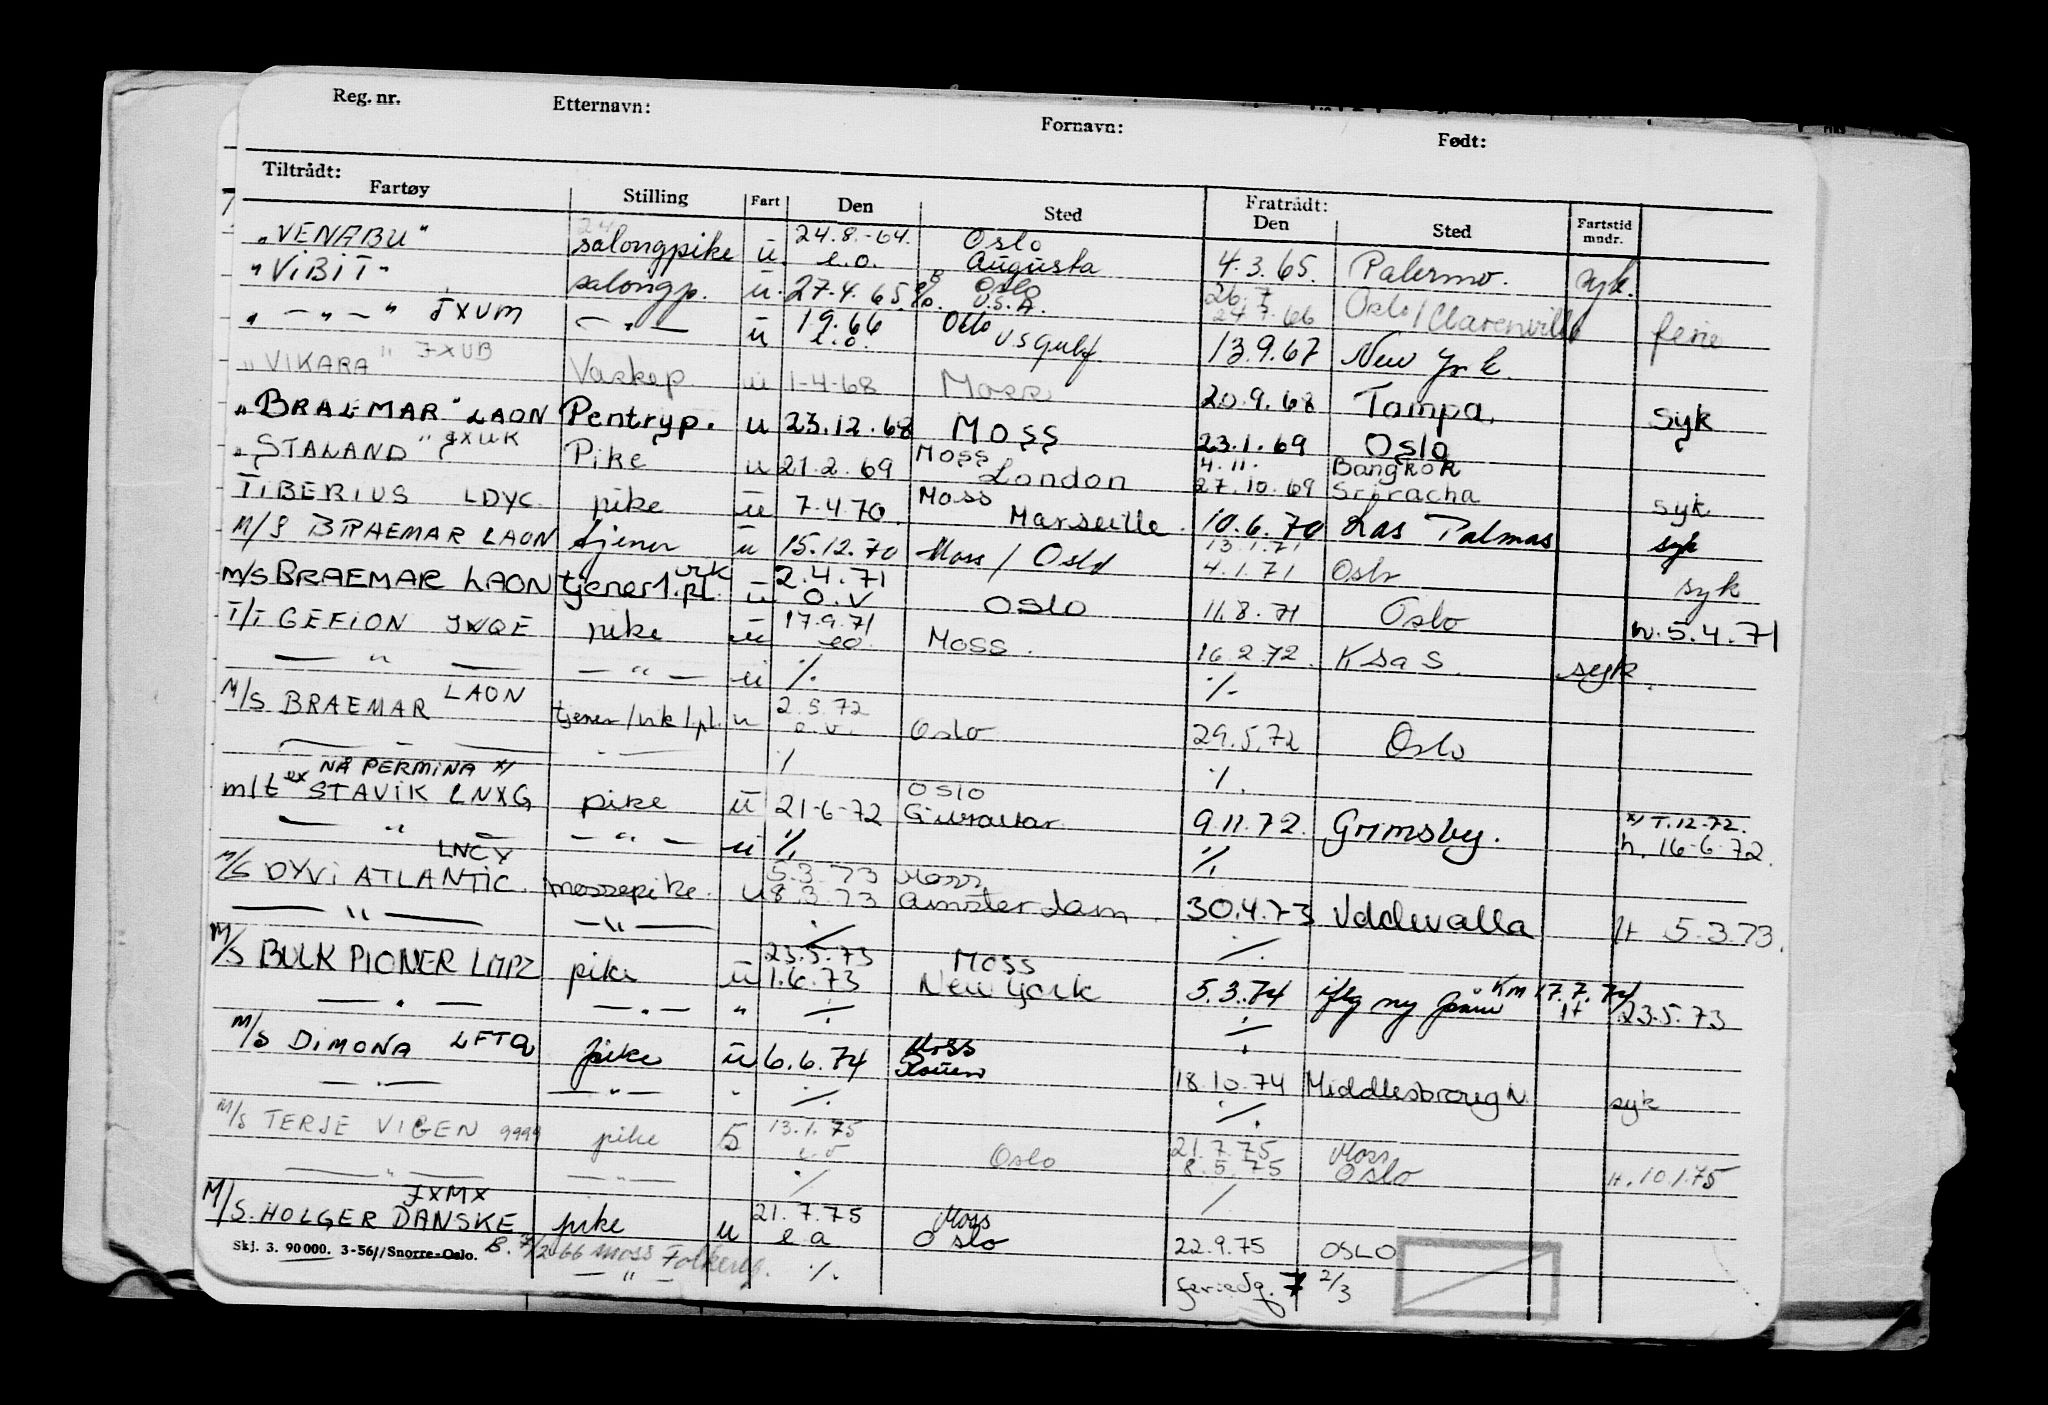 Reg. nr. Etternavn: Fornavn: Født:
Tiltrådt: Fratrådt:
Fartøy Stilling Fart Den Sted Den Sted Fartstid mndr.
"VENABU" salongpike u. 24.8.-64. e.o. Oslo Augusta 4.3.65. Palermo. syk.
"ViBiT" salongp. u. 27.4.65 Oslo U.S.A. 26.7 24.7.66 Oslo/Clarenville ferie
" — " — " JXUM — " — u 1.9.66 e.o. Oslo US Gulf 13.9.67 New York.
"VIKARA" JXUB Vaskep u 1-4-68 Moss 20.9.68 Tampa. Syk
"BRAEMAR" LAON Pentryp. u 23.12.68 Moss 23.1.69 Oslo
"STALAND" JXWK Pike u 21.2.69 Moss London 4.11. 27.10.69 Bangkok Sriracha syk
TiBERIUS LDYC. pike u 7.4.70. Moss Marseille. 10.6.70 Las Palmas syk
M/S BRAEMAR LAON tjener u 15.12.70 Moss / Oslo 13.1.71 4.1.71 Oslo syk
m/s BRAEMAR LAON tjener 1.pl. vik u 2.4.71 o.v Oslo 11.8.71 Oslo h. 5.4.71
T/T GEFION JWQE pike u 17.9.71 eo Moss. 16.2.72. K Sa S. syk.
— " — — " — u % %
M/S BRAEMAR LAON tjener/vik 1pl. u 2.5.72 e.v. Oslo 29.5.72 Oslo
— — " — % %
NÅ PERMINA x/
m/t ex STAViK LNXG pike u 21-6-72 Oslo Gibraltar 9.11.72. Grimsby. x/ T.12.72. h. 16-6-72.
— " — — " — u % %
M/S DYVi ATLANTIC. LNCY messepike. u 5.3.73 8.3.73 Moss Amsterdam. 30.4.73 Uddevalla H 5.3.73.
— " — — " — % %
M/S BULK PIONER LMPZ pike u 23.5.73 1.6.73 Moss New York 5.3.74 iflg ny KM 17.7.74 H 23.5.73
— " — — " — " % %
M/S DiMONA LFTQ pike u 6.6.74 Moss Rouen 18.10.74 Middlesbrough. syk
— " — — " — " % %
M/S TERJE VIGEN 9999 pike 5 13.1.75 Oslo 21.7.75 8.5.75 Moss Oslo H. 10.1.75
— " — — " — % %
M/S. HOLGER DANSKE JXMX pike u 21.7.75 e a Moss Oslo 22.9.75 OSLO
Skj. 3. 90 000. 3-56//Snorre-Oslo. B. 7/2-66 Moss Folkereg. — " — % feriedg. 7 2/3